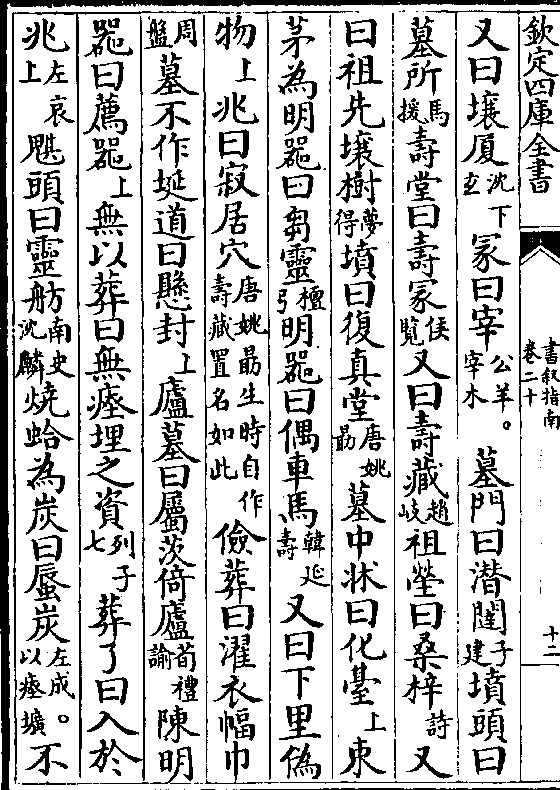 欽定四庫全書
書叙指南
卷二十
十二
又曰壤厦沈下冢曰宰公羊。宰木墓門曰潜闥子建墳頭曰
墓所馬援壽堂曰壽冢侯覽又曰壽藏趙岐祖塋曰桑梓詩又
曰祖先壤樹夢得墳曰復真堂唐姚勗墓中牀曰化臺上束
茅為明器曰芻靈檀弓明器曰偶車馬韓延壽又曰下里偽
物上兆曰寂居穴唐姚勗生時自作壽藏置名如此儉葬曰濯衣幅巾
周盤墓不作埏道曰懸封上廬墓曰屬茨倚廬荀禮諭陳明
器曰薦器上無以葬曰無瘞埋之資列子七葬了曰入於
兆左哀上魌頭曰靈舫南史沈麟燒蛤為炭曰蜃炭左成。以瘞壙不